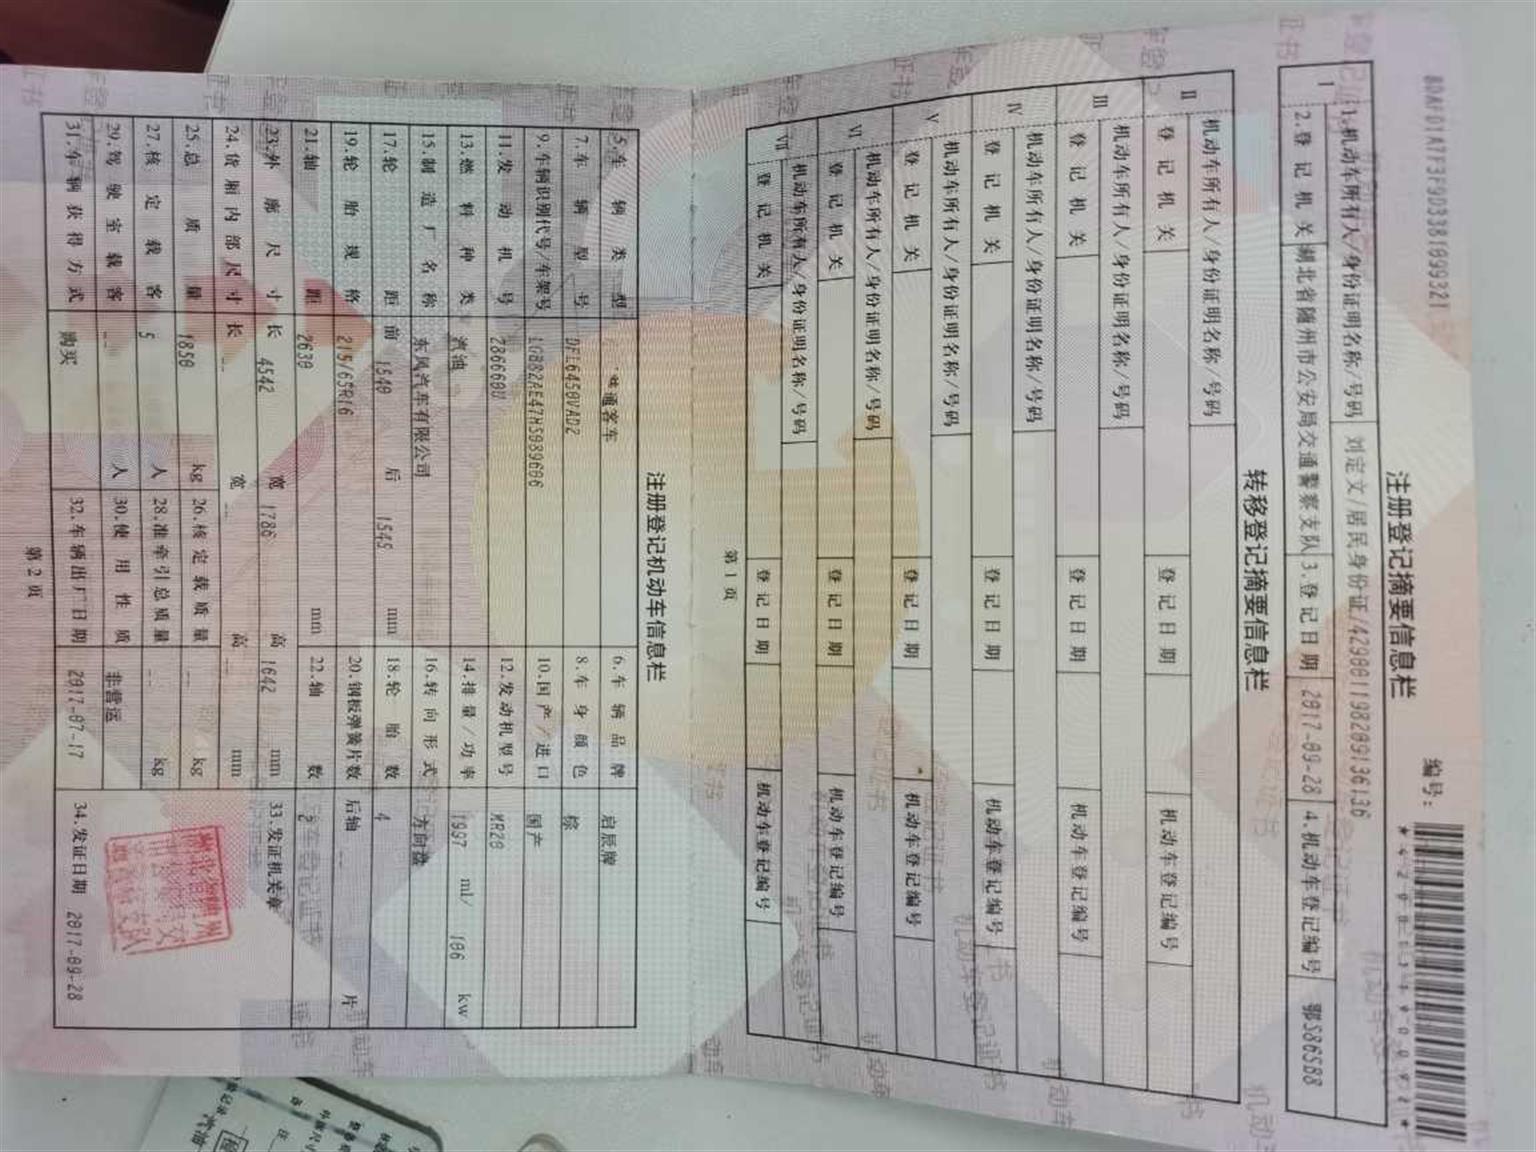 编号：
8DAF01A7F3F9D3381099321
注册登记摘要信息栏
I 1.机动车所有人/身份证明名称/号码 刘定文/居民身份证/429001198209136136
2.登记机关 湖北省随州市公安局交通警察支队 3.登记日期 2017-09-28 4.机动车登记编号 鄂S86SB8
转移登记摘要信息栏
II 机动车所有人/身份证明名称/号码
登记机关 登记日期 机动车登记编号
III 机动车所有人/身份证明名称/号码
登记机关 登记日期 机动车登记编号
IV 机动车所有人/身份证明名称/号码
登记机关 登记日期 机动车登记编号
V 机动车所有人/身份证明名称/号码
登记机关 登记日期 机动车登记编号
VI 机动车所有人/身份证明名称/号码
登记机关 登记日期 机动车登记编号
VII 机动车所有人/身份证明名称/号码
登记机关 登记日期 机动车登记编号
第1页
注册登记机动车信息栏
5.车辆类型 普通客车 6.车辆品牌 启辰牌
7.车辆型号 DFL6450VAD2 8.车身颜色 棕
9.车辆识别代号/车架号 LGBB2AE47HS089606 10.国产/进口 国产
11.发动机号 286660U 12.发动机型号 MR20
13.燃料种类 汽油 14.排量/功率 1997 ml/ 106 kw
15.制造厂名称 东风汽车有限公司 16.转向形式 方向盘
17.轮距 前 1540 后 1545 mm 18.轮胎数 4
19.轮胎规格 215/65R16 20.钢板弹簧片数 后轴 -- 片
21.轴距 2630 mm 22.轴数 2
23.外廓尺寸 长 4542 宽 1786 高 1642 mm 33.发证机关章
24.货厢内部尺寸 长 -- 宽 -- 高 -- mm
25.总质量 1850 kg 26.核定载质量 -- kg
27.核定载客 5 人 28.准牵引总质量 -- kg
29.驾驶室载客 -- 人 30.使用性质 非营运
31.车辆获得方式 购买 32.车辆出厂日期 2017-07-17 34.发证日期 2017-09-28
第2页